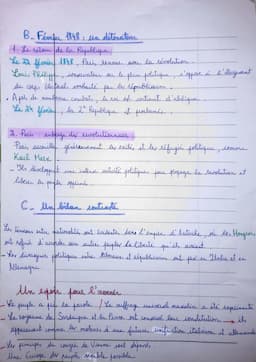 B. Février 1848 : un détonateur
1. Le retour de la République
Le 22 février 1848, Paris renoue avec la révolution.
Louis Philippe, conservateur sur le plan politique, s'oppose à l'élargissement
du corps électoral souhaité par les républicains.
Après de nombreux combats, le roi est contraint d'abdiquer.
Le 24 février, la 2e République est proclamée.
2. Paris : auberge des révolutionnaires
Paris accueille généreusement les exilés et les réfugiés politiques, comme
Karl Marx.
- Ils développent une intense activité politique pour propager la révolution et
libérer les peuples opprimés.
C. Un bilan contrasté
Les tensions entre nationalités ont éclaté dans l'empire d'Autriche, où les Hongrois
ont refusé d'accorder aux autres peuples la liberté qu'ils avaient.
- Les divergences politiques entre libéraux et républicains ont pesé en Italie et en
Allemagne
Un espoir pour l'avenir
- Le peuple a pris la parole / Le suffrage universel masculin a été expérimenté
- Le royaume de Sardaigne et la Prusse ont conservé leur constitution → ils
apparaissent comme les moteurs d'une future unification italienne et allemande
- Les principes du congrès de Vienne sont dépassés,
Une Europe des peuples semble possible.